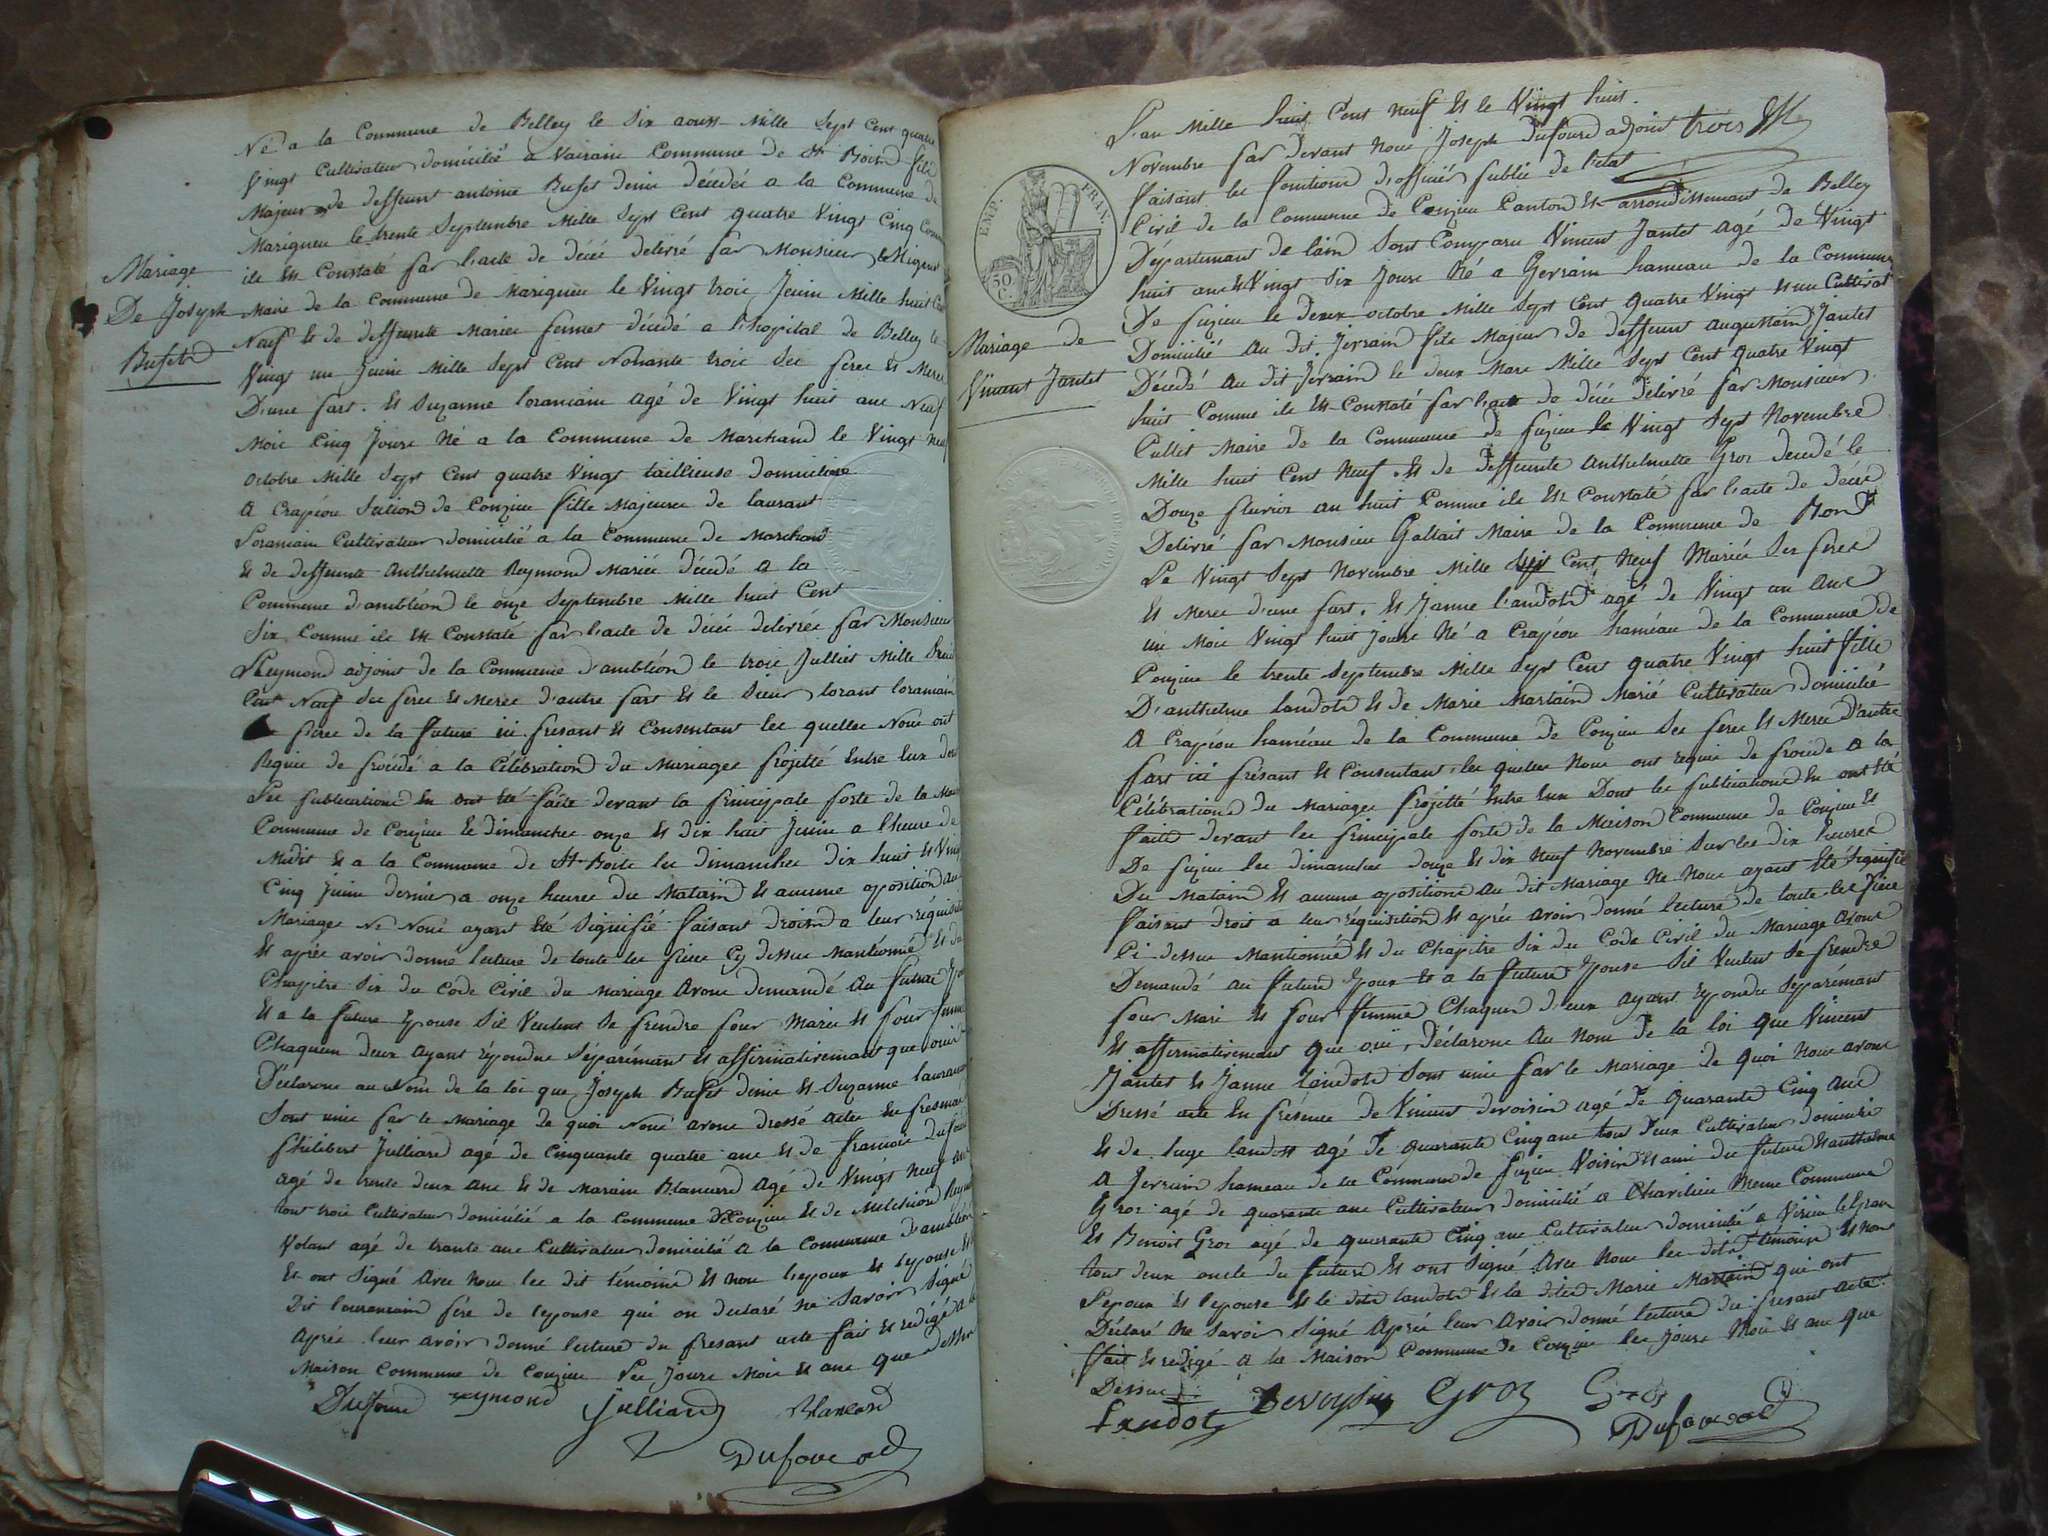 Né a la Commune de Belley le Six aoust Mille Sept Cent quatre
Vingt Cultivateur domicilié a Vairain Commune de St Boid fils
Majeur de deffeunt antoine Bufet denin décédée a la Commune de
Marigneu le trente Septembre Mille Sept Cent quatre Vingt Cinq Comme
ile Est Constaté par l'acte de décé délivré par Monsieur
Mariage
De Joseph
Bufet
Maire de la Commune de Marigneu le Vingt troie Jeuin Mille huit Cent
Neuf Et de deffeunte Mariee décédé a l'hopital de Belley le
Vingt un Jeuin Mille Sept Cent Nonante troie See peree Et Meree
D'une part. Et Suzanne loranciain agé de Vingt huit ane Neuf
Moie Cinq Joure Né a la Commune de Marchand le Vingt Neuf
octobre Mille Sept Cent quatre Vingt taillieuse domiciliée
A Crapéou Sution de Conzieu fille Majeure de laurant
Loranciain Cultivateur domicilié a la Commune de Marchand
Et de deffeunte Anthelmette Reymond Mariée décédé a la
Commune d'ambléon le onze Septembre Mille huit Cent
Six Comme ile Est Constaté par l'acte de décée délivrée par Monsieur
Rheymond adjoint de la Commune d'ambléon le troie Julliet Mille huit
Cent Neuf See peree Et Meree d'autre part Et le Sieur lorant loranciain
peree de la future ici présant Et Consentant lee quellee Noue ont
Requie de procédé a la Célébration du Mariagee projetté Entre Eux dont
Lee publication En ont Eté faite devant la principale porte de la
Commune de Conzieu le dimanchee onze Et dix huit Jeuin a l'heure de
Midit Et a la Commune de St Boite lee dimanchee dix huit Et Vingt
Cinq Jeuin dernie a onze heuree du Matain Et aucune oposition au
Mariagee Ne Noue ayant Eté Signifié faisant droit a leur réquisition
Et aprée avoir donné lecture de toute lee pieee Cy dessue Mantionnée Et du
Chapitre Six du Code Civil du Mariage Avone demandé Au futur
Et a la future Epouse Sil Veulent Se prendre pour Mariee Et pour femme
Chaquun deux ayant répondue Séparémant Et affirmativemant que oui
Déclarone au Nom de la loi que Joseph Bufet denin Et Suzanne
Sont unie par le Mariage de quoi Noue avone dressé actee En presence
Philibert Julliard agé de Cinquante quatre ane Et de francoie
agé de trente deux ane Et de Marain Blancard agé de Vingt Neuf ane
tout troie Cultivateur domicilié a la Commune de Conzieu Et de Melchiord
Volant agé de trante ane Cultivateur domicilié a la Commune d'ambléon
Et ont Signé Avec Noue lee dit témoind Et non l'epoux Et l'epouse
Dit loranciain pére de l'epouse qui on déclaré ne Savoir Signé
Aprée leur avoir donné lecture du presant acte fait Et redigé a la
Maison Commune de Conzieu Lee Joure Moie Et ane que dessue
Dufour reymond Julliard Blancard
Dufourd
L'an Mille huit Cent Neuf Et le Vingt huit
Novembre par devant Noue Joseph Dufourd adjoint trois
faisant lee fonctiond d'officiér publie de l'etat
EMP. FRAN.
50 C.
Civil de la Commune de Conzieu Canton Et arrondissemant de Belley
Départemant de l'ain Sont Comparu Vincent Jantet Agé de Vingt
huit ane Et Vingt Six Joure Né a Gerrain hameau de la Commune
De puzieu le deux octobre Mille Sept Cent quatre Vingt et un Cultivat
Mariage de
Vincent Jantet
Domicilié Au dit Jerrain file Majeur de deffeunt augustain Jantet
Décédé Au dit Jerrain le deux Mare Mille Sept Cent quatre Vingt
huit Comme ile Est Constaté par l'acte de décé délivré par Monsieur
Cullet Maire de la Commune de puzieu le Vingt Sept Novembre
Mille huit Cent Neuf. Et de deffeunte Anthelmette Groz decedé le
Douze fleurior an huit Comme ile Est Constaté par l'acte de décée
Delivré par Monsieu Gallait Maire de la Commune de Bond
Le Vingt Sept Novembre Mille Cent Neuf Mariée See peree
Et Meree d'une part. Et Janne landoted agé de Vingt un Ane
un Moie Vingt huit Joure Né a Crapéou haméau de la Commune de
Conzieu le trente Septembre Mille Sept Cent quatre Vingt huit fille
D'anthelme landoted Et de Marie Martaind Marié Cultivateur domicilié
A Crapéou haméau de la Commune de Conzieu See peree Et Meree D'autre
part ici présant Et Consentant, lee quellee Noue ont requie de procéde a la
Célébration du Mariagee projetté Entre Eux Dont lee publication En ont Eté
faite devant lee principale porte de la Maison Commune de Conzieu Et
De puzieu lee dimanchee douze Et dix Neuf Novembre Sur lee dix heuree
Du Matain Et aucune oposition Au dit Mariage Ne Noue ayant Eté Signifié
faisant droit a leur réquisition Et aprée avoir donné lecture de toute lee piéce
Ci-dessue Mantionnée Et du Chapitre Six du Code Civil du Mariage Avone
Demandé au future Epoux Et a la future Epouse Sil Veulent Se prendre
pour Mari Et pour femme Chaquun d'eux ayant Répondu Séparémant
Et affirmativemant que oui, Déclarone Au Nom de la loi que Vincent
Jantet Et Janne landoted Sont unie par le Mariage de quoi Noue avone
Dressé acte En présence de Vincent devoisin agé de quarante Cinq Ane
Et de luge landoz Agé de quarante Cinq ane tout deux Cultivateur domicilié
A Jerrain hameau de la Commune de puzieu Voisin Et ami du future Et anthelme
Groz agé de quarante ane Cultivateur domicilié a Charilieu Meme Commune
Et Benoit Groz agé de quarante Cinq ane Cultivateur domicilié a Virieu le Gran
tout deux oncle du future Et ont Signé Avec Noue lee dite témoin Et non
L'epoux Et l'epouse Et le dite landoted Et la dite Marie Martaind qui ont
Déclaré Ne Savoir Signé Aprée leur Avoir donné lecture du presant acte
fait Et redigé A la Maison Commune de Conzieu lee Joure Moie Et ane que
Dessue
Landoz Devoysin Groz Groz
Dufourd